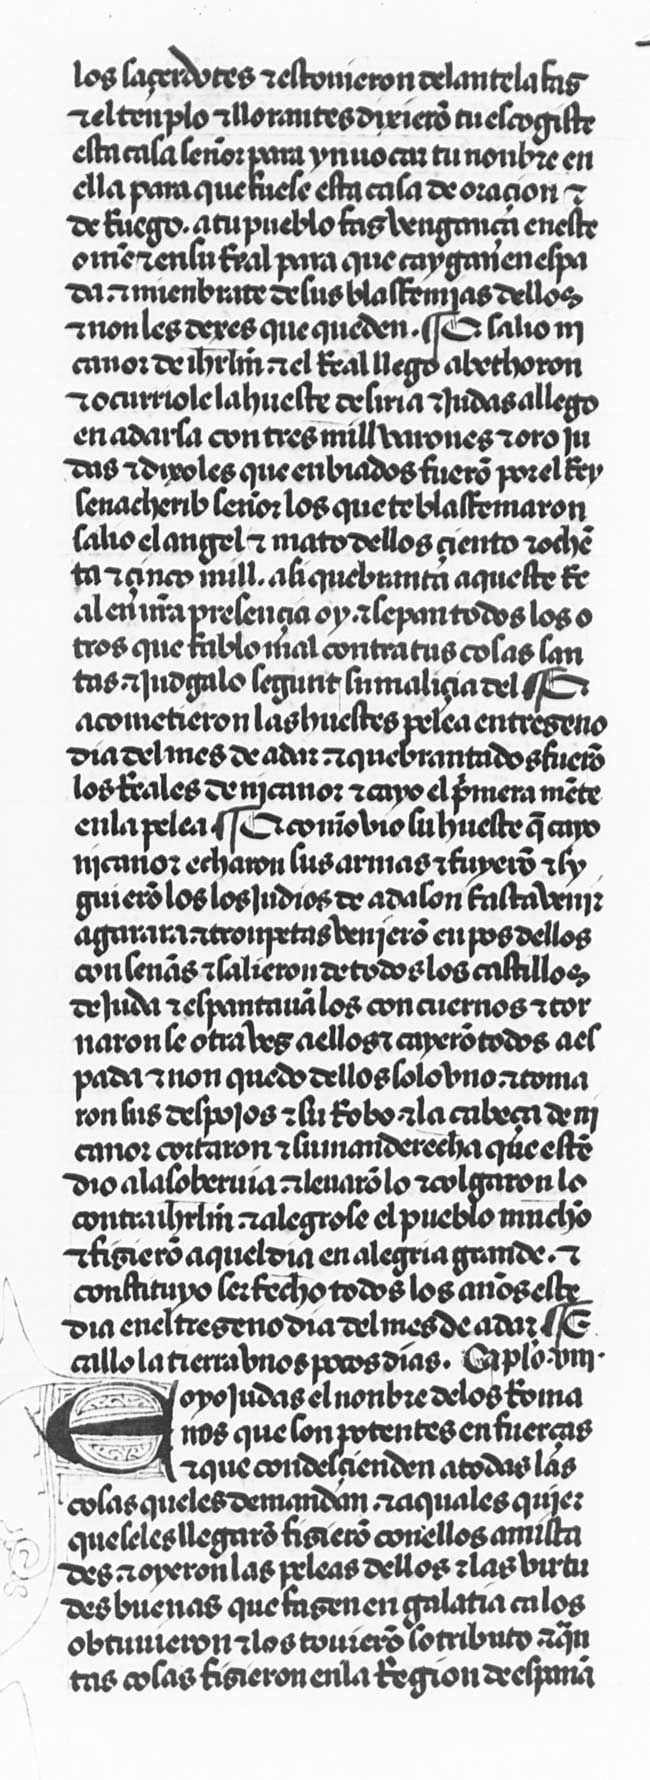 los saçerdotes ⁊ estouieron delante la faz
⁊ el tenplo ⁊ llorantes dixierõ tu escogiste
esta casa señor para ynuocar tu nonbre en
ella para que fuese esta casa de oraçion ⁊
de Ruego. a tu pueblo faz vengança en este
om̃e ⁊ en su Real para que caygan en espa
da ⁊ mienbrate de sus blasfemjas dellos
⁊ non les dexes que queden. ¶ E salio ni
canor de ihrl̃m ⁊ el Real llego a bethoron
⁊ ocurriole la hueste de siria ⁊ Judas allego
en adarsa con tres mill varones ⁊ oro Ju
das ⁊ dixoles que enbiados fuerõ por el Rey
senacherib señor los que te blasfemaron
salio el angel ⁊ mato dellos çiento ⁊ochẽ
ta ⁊ çinco mill. asi quebranta aqueste Re
al en nr̃a presençia oy. ⁊ sepan todos los o
tros que fablo mal contra tus cosas san
tas ⁊ Judgalo segunt su maliçia del ¶ E
acometieron las huestes pelea en trezeno
dia del mes de adar ⁊ quebrantados fuerõ
los Reales de nicanor ⁊ cayo el p̃mera mẽte
en la pelea ¶ E com̃o vio su hueste q̃ cayo
nicanor echaron sus armas ⁊ fuyerõ ⁊ sy
guierõ los los Judios de adason fasta venir
a gazara. ⁊ tronpetas venjerõ en pos dellos
con señas ⁊ salieron de todos los castillos
de Juda ⁊ espantauã los con cuernos ⁊ tor
naron se otra vez a ellos ⁊ cayerõ todos a es
pada ⁊ non quedo dellos solo vno. ⁊ toma
ron sus despojos ⁊ su Robo ⁊ la cabeça de ni
canor cortaron ⁊ su man derecha que estẽ
dio a la soberuia. ⁊ leuarõ lo ⁊ colgaron lo
contra ihrl̃m. ⁊ alegrose el pueblo mucho
⁊ fizierõ aquel dia en alegria grande. ⁊
constituyo ser fecho todos los años este
dia en el trezeno dia del mes de adar ¶ E
callo la tierra vnos pocos dias. Capl̃o. viii.
E oyo Judas el nonbre de los Roma
nos que son potentes en fuerças
⁊ que condesçienden a todas las
cosas que les demandan. ⁊ a quales quier
que se les llegarõ fizierõ con ellos amista
des. ⁊ oyeron las peleas dellos ⁊ las virtu
des buenas que fazen en galatia ca los
obtuuieron ⁊ los touierõ so tributo ⁊ q̃n
tas cosas fizieron en la Region de españa